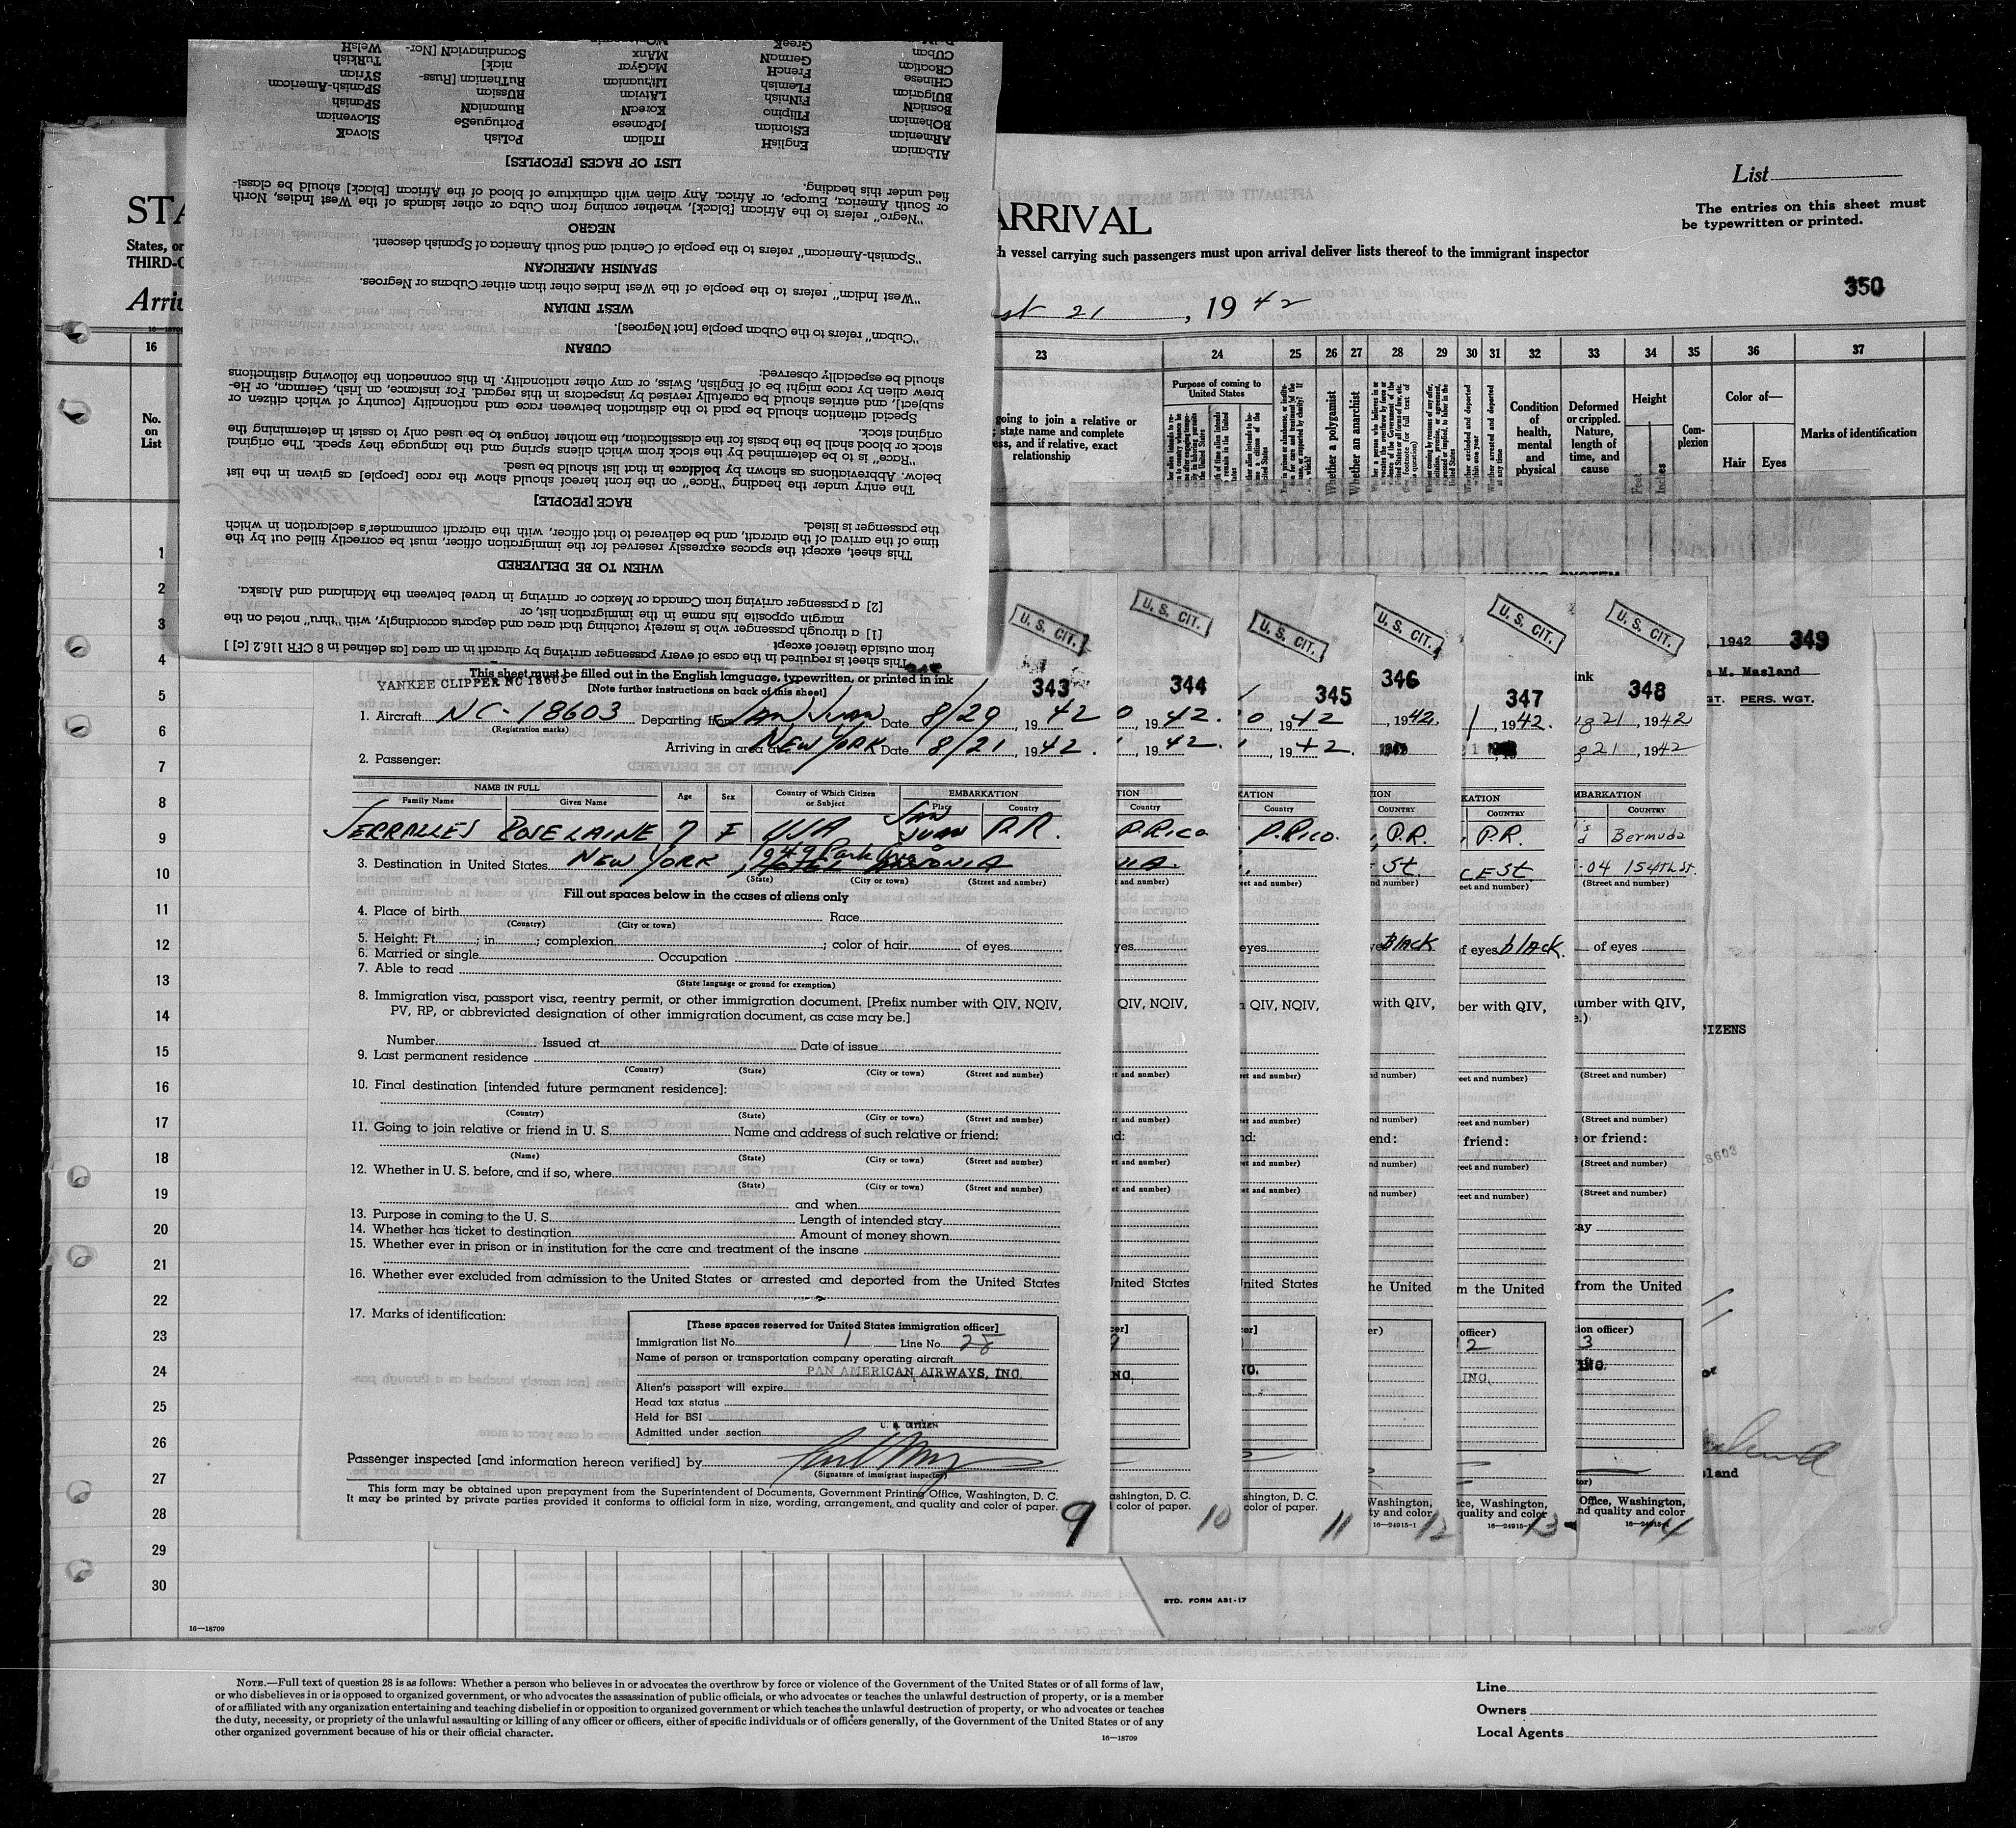 WelsH
TuRkish
SYrian
SPanish-American
SPanish
SLOvenian
SlovaK
ScandinaviaN [Nor-
niak]
RuThenian [Russ-
RUssian
RumaniaN
PortugueSe
PoLish
MAnx
MaGyar
LIthuanian
LAtvian
KoreaN
JaPanese
ITalian
GreeK
GermaN
FrencH
FLemish
FINnish
FIlipino
EStonian
EnglisH
CUban
CRoatian
CHinese
BUlgarian
BosniaN
BOhemian
ARmenian
ALbanian
LIST OF RACES [PEOPLES]
"Negro" refers to the African [black], whether coming from Cuba or other islands of the West Indies, North
or South America, Europe, or Africa. Any alien with admixture of blood of the African [black] should be classi-
fied under this heading.
NEGRO
"Spanish-American" refers to the people of Central and South America of Spanish descent.
SPANISH AMERICAN
"West Indian" refers to the people of the West Indies other than either Cubans or Negroes.
WEST INDIAN
"Cuban" refers to the Cuban people [not Negroes].
CUBAN
Special attention should be paid to the distinction between race and nationality [country of which citizen or
subject], and entries should be carefully revised by inspectors in this regard. For instance, an Irish, German, or He-
brew alien by race might be of English, Swiss, or any other nationality. In this connection the following distinctions
should be especially observed:
"Race" is to be determined by the stock from which aliens spring and the language they speak. The original
stock or blood shall be the basis for the classification, the mother tongue to be used only to assist in determining the
original stock.
The entry under the heading "Race" on the front hereof should show the race [people] as given in the list
below. Abbreviations as shown by boldface in that list should be used.
RACE [PEOPLE]
This sheet, except the spaces expressly reserved for the immigration officer, must be correctly filled out by the
time of the arrival of the aircraft, and be delivered to that officer, with the aircraft commander's declaration in which
the passenger is listed.
WHEN TO BE DELIVERED
[2] a passenger arriving from Canada or Mexico or arriving in travel between the Mainland and Alaska.
[1] a through passenger who is merely touching that area and departs accordingly, with "thru" noted on the
margin opposite his name in the immigration list, or
This sheet is required in the case of every passenger arriving by aircraft in an area [as defined in 8 CFR 116.2 [c] ]
from outside thereof except
List
The entries on this sheet must
be typewritten or printed.
STA
ARRIVAL
States, or
THIRD-C
h vessel carrying such passengers must upon arrival deliver lists thereof to the immigrant inspector
350
Arriv
st 21, 1942
16 23 24 25 26 27 28 29 30 31 32 33 34 35 36 37
No.
on
List
going to join a relative or
; state name and complete
ess, and if relative, exact
relationship
Purpose of coming to
United States
Whether a polygamist
Whether an anarchist
Condition
of
health,
mental
and
physical
Deformed
or crippled.
Nature,
length of
time, and
cause
Height
Feet
Inches
Com-
plexion
Color of—
Hair
Eyes
Marks of identification
1
2
3
4
5
6
7
8
9
10
11
12
13
14
15
16
17
18
19
20
21
22
23
24
25
26
27
28
29
30
16—18709
U. S. CIT.
U. S. CIT.
U. S. CIT.
U. S. CIT.
U. S. CIT.
U. S. CIT.
This sheet must be filled out in the English language, typewritten, or printed in ink
YANKEE CLIPPER NC 18603
[Note further instructions on back of this sheet]
343
1. Aircraft NC-18603 Departing from San Juan Date 8/20, 1942
(Registration marks)
Arriving in area at New York Date 8/21, 1942.
2. Passenger:
NAME IN FULL
Family Name
Given Name
Age
Sex
Country of Which Citizen
or Subject
EMBARKATION
Place
Country
SERRALLES ROSELAINE 7 F USA SAN JUAN P.R.
3. Destination in United States NEW YORK, 1049 Park Ave
(State) (City or town) (Street and number)
Fill out spaces below in the cases of aliens only
4. Place of birth Race
(Country) (City or town)
5. Height: Ft. ; in. ; complexion ; color of hair of eyes
6. Married or single Occupation
7. Able to read
(State language or ground for exemption)
8. Immigration visa, passport visa, reentry permit, or other immigration document. [Prefix number with QIV, NQIV,
PV, RP, or abbreviated designation of other immigration document, as case may be.]
Number Issued at Date of issue
9. Last permanent residence
(Country) (State) (City or town) (Street and number)
10. Final destination [intended future permanent residence]:
(Country) (State) (City or town) (Street and number)
11. Going to join relative or friend in U. S. Name and address of such relative or friend:
(Name) (State) (City or town) (Street and number)
12. Whether in U. S. before, and if so, where
(State) (City or town) (Street and number)
and when
13. Purpose in coming to the U. S. Length of intended stay
14. Whether has ticket to destination Amount of money shown
15. Whether ever in prison or in institution for the care and treatment of the insane
16. Whether ever excluded from admission to the United States or arrested and deported from the United States
17. Marks of identification:
[These spaces reserved for United States immigration officer]
Immigration list No. 1 Line No. 28
Name of person or transportation company operating aircraft
PAN AMERICAN AIRWAYS, INC.
Alien's passport will expire
Head tax status
Held for BSI
U. S. CITIZEN
Admitted under section
Passenger inspected [and information hereon verified] by
(Signature of immigrant inspector)
This form may be obtained upon prepayment from the Superintendent of Documents, Government Printing Office, Washington, D. C.
It may be printed by private parties provided it conforms to official form in size, wording, arrangement, and quality and color of paper.
9
344
0, 1942.
, 1942.
TION
Country
P.Rico
t and number)
yes
QIV, NQIV,
et and number)
nd:
United States
cer]
NC.
ashington, D. C.
color of paper.
10
345
0, 1942
, 1942.
KATION
Country
P.Rico.
eet and number)
eyes
QIV, NQIV,
eet and number)
nd:
United States
er]
NC.
shington, D. C.
color of paper.
11
346
, 1942.
TION
COUNTRY
, P.R.
St.
nd number)
Black
with QIV,
nd number)
end:
he United
er)
Washington,
ty and color
16—24915-1
12
347
, 1942.
KATION
COUNTRY
, P.R.
CE St.
eet and number)
of eyes black.
ber with QIV,
eet and number)
friend:
m the United
officer)
2
INC.
ice, Washington,
quality and color
16—24915-1
13
ink
348
g 21, 1942
g 21, 1942
MBARKATION
COUNTRY
Bermuda
-04 154th St.
(Street and number)
of eyes
number with QIV,
e.)
(Street and number)
e or friend:
(Street and number)
tay
from the United
ion officer)
3
INC.
Office, Washington,
nd quality and color
14
, 1942 349
M. Masland
GT. PERS. WGT.
IZENS
18603
land
STD. FORM ASI-17
NOTE.—Full text of question 28 is as follows: Whether a person who believes in or advocates the overthrow by force or violence of the Government of the United States or of all forms of law,
or who disbelieves in or is opposed to organized government, or who advocates the assassination of public officials, or who advocates or teaches the unlawful destruction of property, or is a member
of or affiliated with any organization entertaining and teaching disbelief in or opposition to organized government or which teaches the unlawful destruction of property, or who advocates or teaches
the duty, necessity, or propriety of the unlawful assaulting or killing of any officer or officers, either of specific individuals or of officers generally, of the Government of the United States or of any
other organized government because of his or their official character.
16—18709
Line
Owners
Local Agents